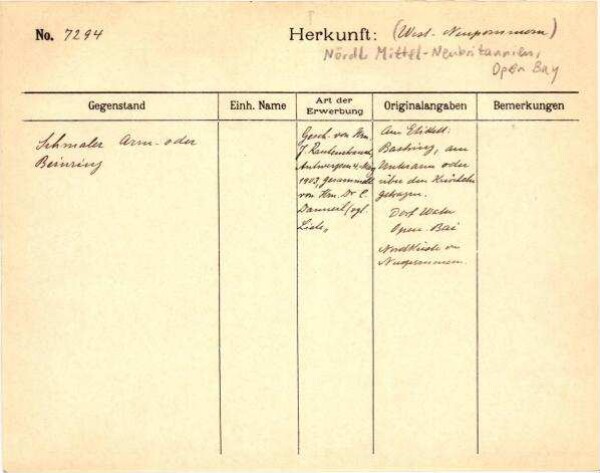 No. 7294
Herkunft: (West-Neupommern)
Nördl. Mittel-Neubritannien,
Open Bay
Gegenstand
Einh. Name
Art der
Erwerbung
Originalangaben
Bemerkungen
Schmaler Arm- oder
Beinring
Gesch. von Hrn.
Antwerpen 4. Mai
1903, gesammelt
von Hrn. Dr.
vgl.
Liste,
Am Etikett:
Bastring, am
Unterarm oder
über den Knöcheln
getragen.
Dorf
Open Bai
Nordküste v.
Neupommern.